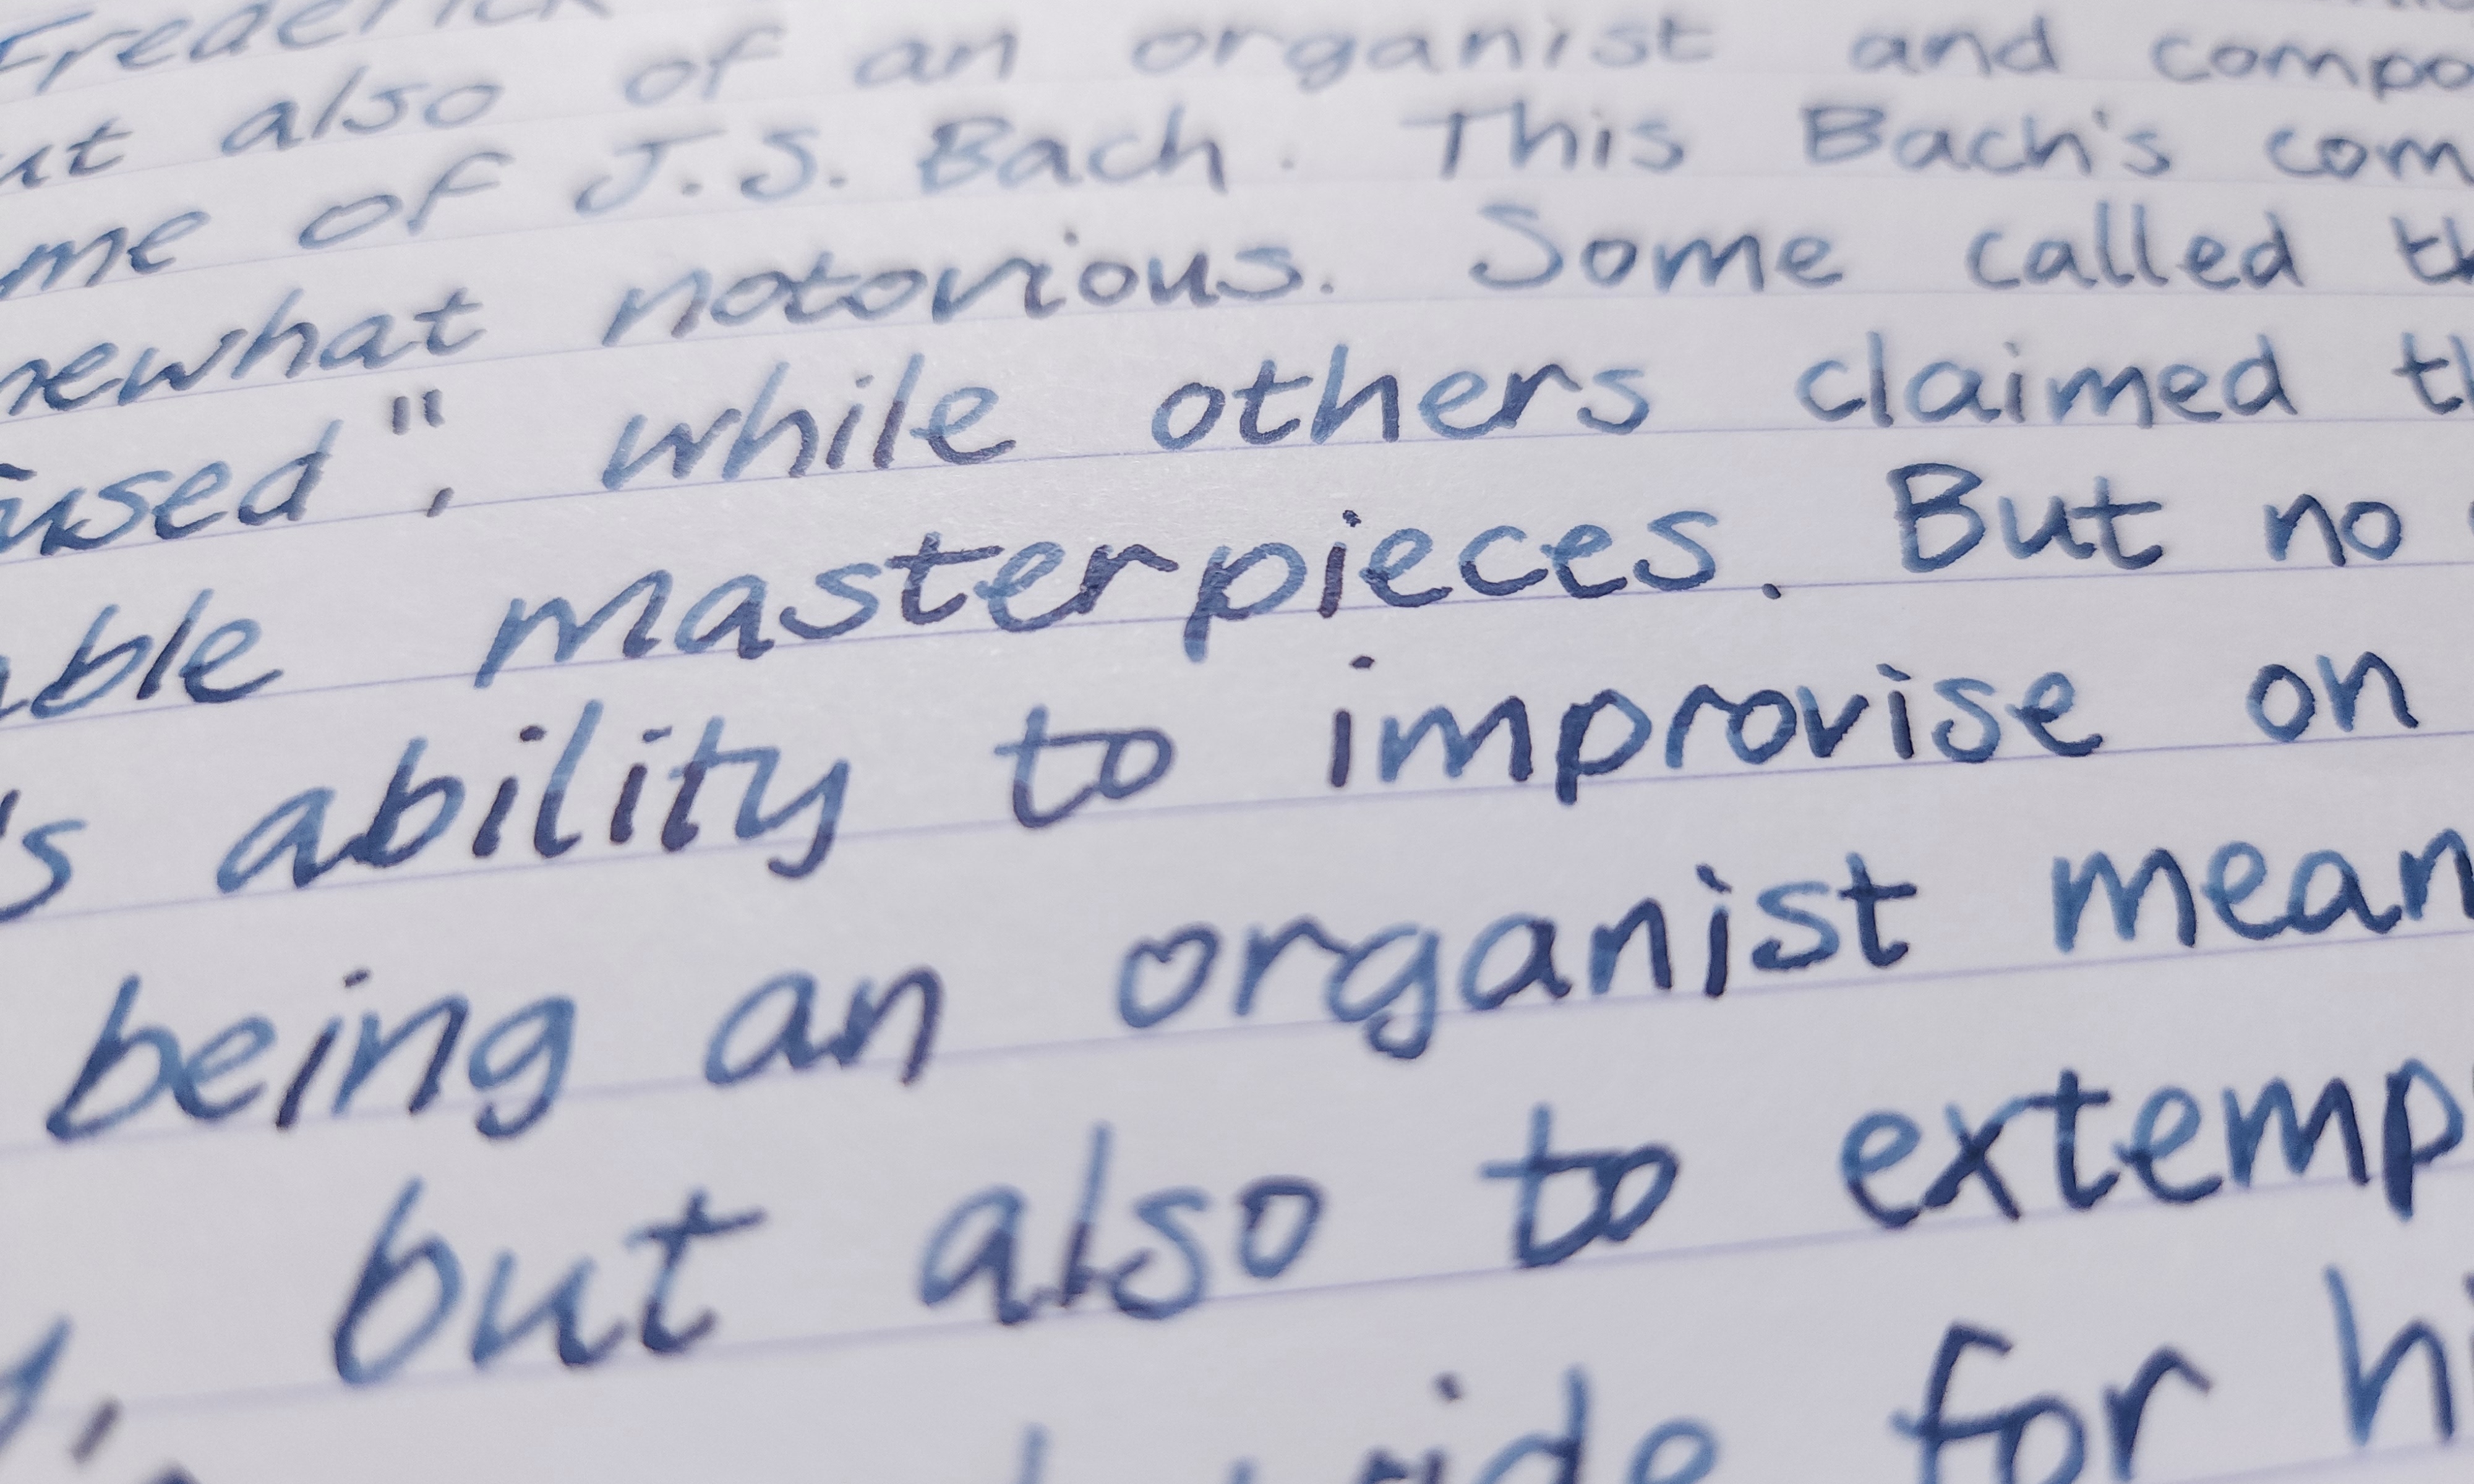 Frederick
ut also of an organist and compo
me of J.S. Bach. This Bach's com
newhat notorious. Some called th
used", while others claimed th
ble masterpieces. But no
's ability to improvise on
being an organist mean
but also to extemp
for hi